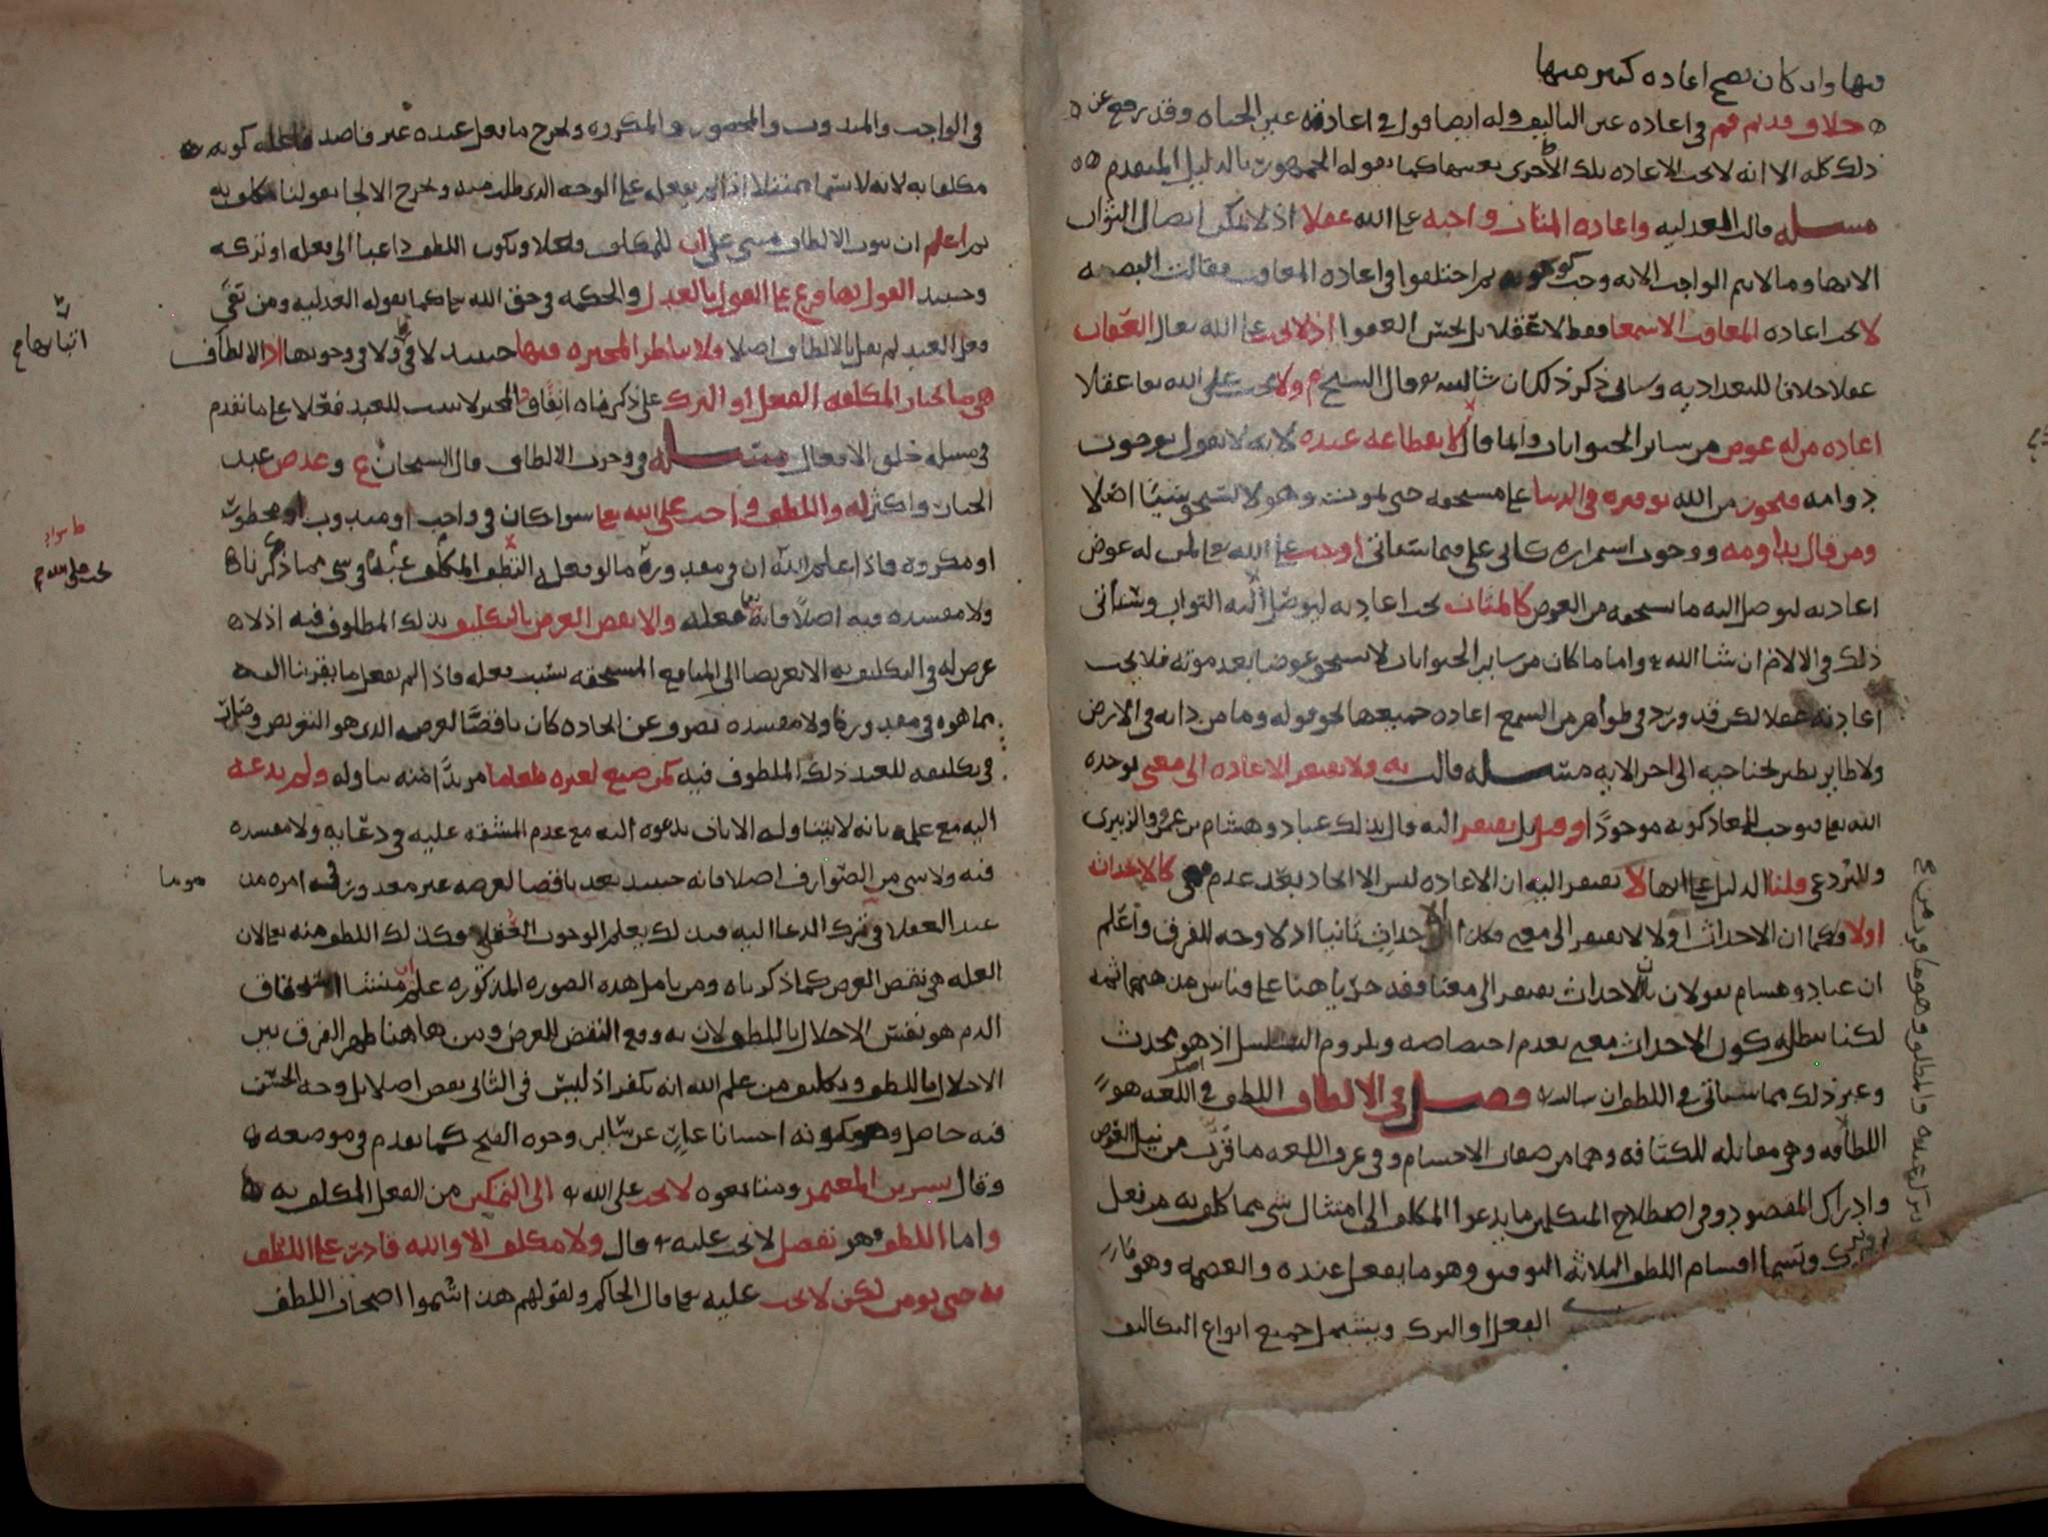 فيها وان كان يصح اعاده كثير منها
خلاف قديم فهم في اعاده عين التاليف وله ايضا قول في اعادة عين الحياه وقد رجع عن
ذلك كله الا انه لا تجب الاعاده بتلك الاجزى بعينها كما يقوله الجمهور بالدليل المتقدم
مسئله قالت العدليه واعاده المثاب واجبه على الله عقلا اذ لا يمكن ايصال الثواب
الا بها وما لا يتم الواجب الا به وجب كوجوبه ثم اختلفوا في اعاده المعاقب فقالت البصريه
لا تجب اعاده المعاقب الا سمعا فقط لا عقلا بل يحسن العفو اذ لا يجب على الله تعالى العقاب
عقلا خلافا للبغداديه وسياتي ذكر ذلك ان شا الله قال الشيخ م ولا يجب على الله تعا عقلا
اعاده من له عوض من ساير الحيوانات وانما قال لانقطاعه عنده لانه لا يقول بوجوب
دوامه فيجوز من الله توفيره في الدنيا على مستحقه حتى يموت وهو لا يستحق شيئا اصلا
ومن قال بدوامه ووجوب استمراره كابي علي فيما سياتي اوجب على الله تعالى لمن له عوض
اعادته ليوصل اليه ما يستحقه من العوض كالمثاب تجب اعادته ليوصل اليه الثواب وسياتي
ذلك في الالام ان شا الله تع واما ما كان من ساير الحيوانات لا يستحق عوضا بعد موته فلا تجب
اعادته عقلا لكن قد ورد في ظواهر من السمع اعاده جميعها نحو قوله وما من دابه في الارض
ولا طاير يطير بجناحيه الى اخر الايه مسئله قالت يه ولا تفتقر الاعاده الى معنى يوجده
الله تعا فيوجب للمعاد كونه موجودا وقيل بل يفتقر اليه قال بذلك عباد وهشام بن عمرو والزبيري
والبردعي قلنا الدليل على انها لا تفتقر اليه ان الاعاده ليس الا ايجاد بعد عدم فهي كالاحداث
اولا فكما ان الاحداث اولا لا يفتقر الى معنى فكذا الاحداث ثانيا اذ لا وجه للفرق واعلم
ان عباد وهشام يقولان بان الاحداث يفتقر الى معنى فقد جريا هنا على قياس مذهبهما ثمه
لكنا نبطله كون الاحداث معنى بعدم اختصاصه وبلزوم التسلسل اذ هو محدث
وغير ذلك مما سياتي في اللطف ان شا الله فصل في الالطاف اللطف في اللغه هو
اللطافه وهي مقابله للكثافه وهما من صفات الاجسام وفي عرف اللغه ما قرب من نيل الغرض
وادراك المقصود وفي اصطلاح المتكلمين ما يدعوا المكلف الى امتثال شي مما كلف به من فعل
او ترك وتسما اقسام اللطف الثلاثه التوفيق وهو ما يفعل عنده والعصمه وهو
الفعل او الترك ويشمل جميع انواع التكاليف
في الواجب والمندوب والمحضور والمكروه ويخرج ما يفعل عنده غير قاصد لاجل كونه
مكلفا به لانه لا يسما ممتثلا اذا لم يفعله على الوجه الذي طلب منه ويخرج الالجا بقولنا مكلف به
ثم اعلم ان ثبوت الالطاف مبني على ان للمكلف فعلا ويكون اللطف داعيا الى فعله او تركه
وحينئذ القول بها فرع على القول بالعدل والحكمه في حق الله تعا كما يقوله العدليه ومن نفى
فعل العبد لم يقل بالالطاف اصلا ولا يناظر المجبره فيها حينئذ لا في ولا في وجوبها اذ الالطاف
هي ما يختار المكلف الفعل او الترك على ذكرناه اتفاق والمجبر لا يثبت للعبد فعلا على ما تقدم
في مسئله خلق الافعال مسئله في وجوب الالطاف قال الشيخان ع وعدض عبد
الجبار واكثر له واللطف واجب على الله تعا سوا كان في واجب او مندوب او محظور
او مكروه فاذا علم الله ان في مقدوره ما لو فعل التطف المكلف عنده في شي مما ذكرناه
ولا مفسده فيه اصلا فانه تعا يفعله والا نقض الغرض بالتكليف بذلك المطلوف فيه اذ لا
غرض له في التكليف به الا تعريضا الى المنافع المستحقه بسبب فعله فاذا لم يفعل ما يقربنا اليه
مما هو في مقدوره ولا مفسده تصرف عن ايجاده كان ناقضا لغرضه الذي هو التعويض
في تكليفه للعبد ذلك الملطوف فيه كمن صنع لغيره طعاما مريدا منه تناوله ولم يدعه
اليه مع علمه بانه لا يتناوله الا بان يدعوه اليه مع عدم المشقه عليه في دعايه ولا مفسده
فيه ولا شي من الصوارف اصلا فانه حينئذ يعد ناقضا لغرضه غير معذور في امره من
عند العقلا في ترك الدعا اليه فبذلك يعلم الوجوب العقلي وكذلك اللطف منه تعا لان
العله هي نقض الغرض كما ذكرناه ومن تامل هذه الصوره المذكوره علم ان منشا استحقاق
الذم هو نفس الاخلال باللطف لان به وقع النقض للغرض ومن هاهنا ظهر الفرق بين
الاخلال باللطف وتكليف من علم الله انه يكفر اذ ليس في الثاني نقض اصلا بل وجه الحسن
فيه حاصل وهو كونه احسانا عار عن ساير وجوه القبح كما تقدم في موضعه
وقال بشر بن المعتمر ومتابعوه لا يجب على الله تع الى التمكين من الفعل المكلف به
واما اللطف فهو تفضل لا يجب عليه تع قال ولا مكلف الا والله قادر على اللطف
به حتى يومن لكن لا يجب عليه تعا قال الحاكم ولقولهم هذا سموا اصحاب اللطف
اثباتها صح
يجب على الله صح